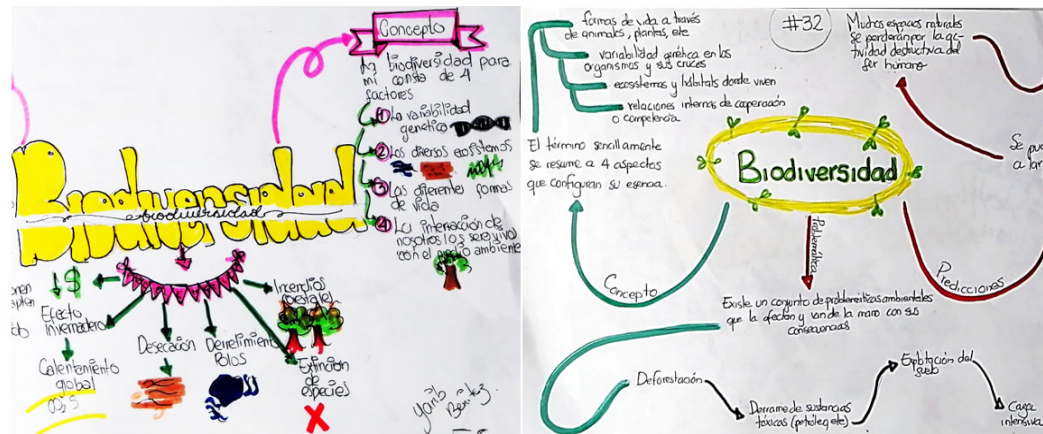 Concepto
La biodiversidad para
mi consta de 4
factores
1 La variabilidad
genética
2 Los diversos ecosistemos
3 Las diferentes formas
de vida
4 La interacción de
nosotros los seres vivos
con el medio ambiente
Biodiversidad
biodiversidad
$
Efecto
Invernadero
Calentamiento
global
Desecación
Derretimiento
Polos
Incendios
forestales
Extinción
de
especies
Yarib
#32
formas de vida a través
de animales, plantas, etc
variabilidad genética en los
organismos y sus cruces
ecosistemas y hábitats donde viven
relaciones internas de cooperación
o competencia.
El término sencillamente
se resume a 4 aspectos
que configuran su esencia.
Concepto
Biodiversidad
Problemática
Muchos espacios naturales
se perderán por la ac-
tividad destructiva del
ser humano
Se
a
Predicciones
Existe un conjunto de problemáticas ambientales
que la afectan y van de la mano con sus
consecuencias
Deforestación
Derrame de sustancias
tóxicas (petróleo, etc)
Explotación del
suelo
Caza
intensiva